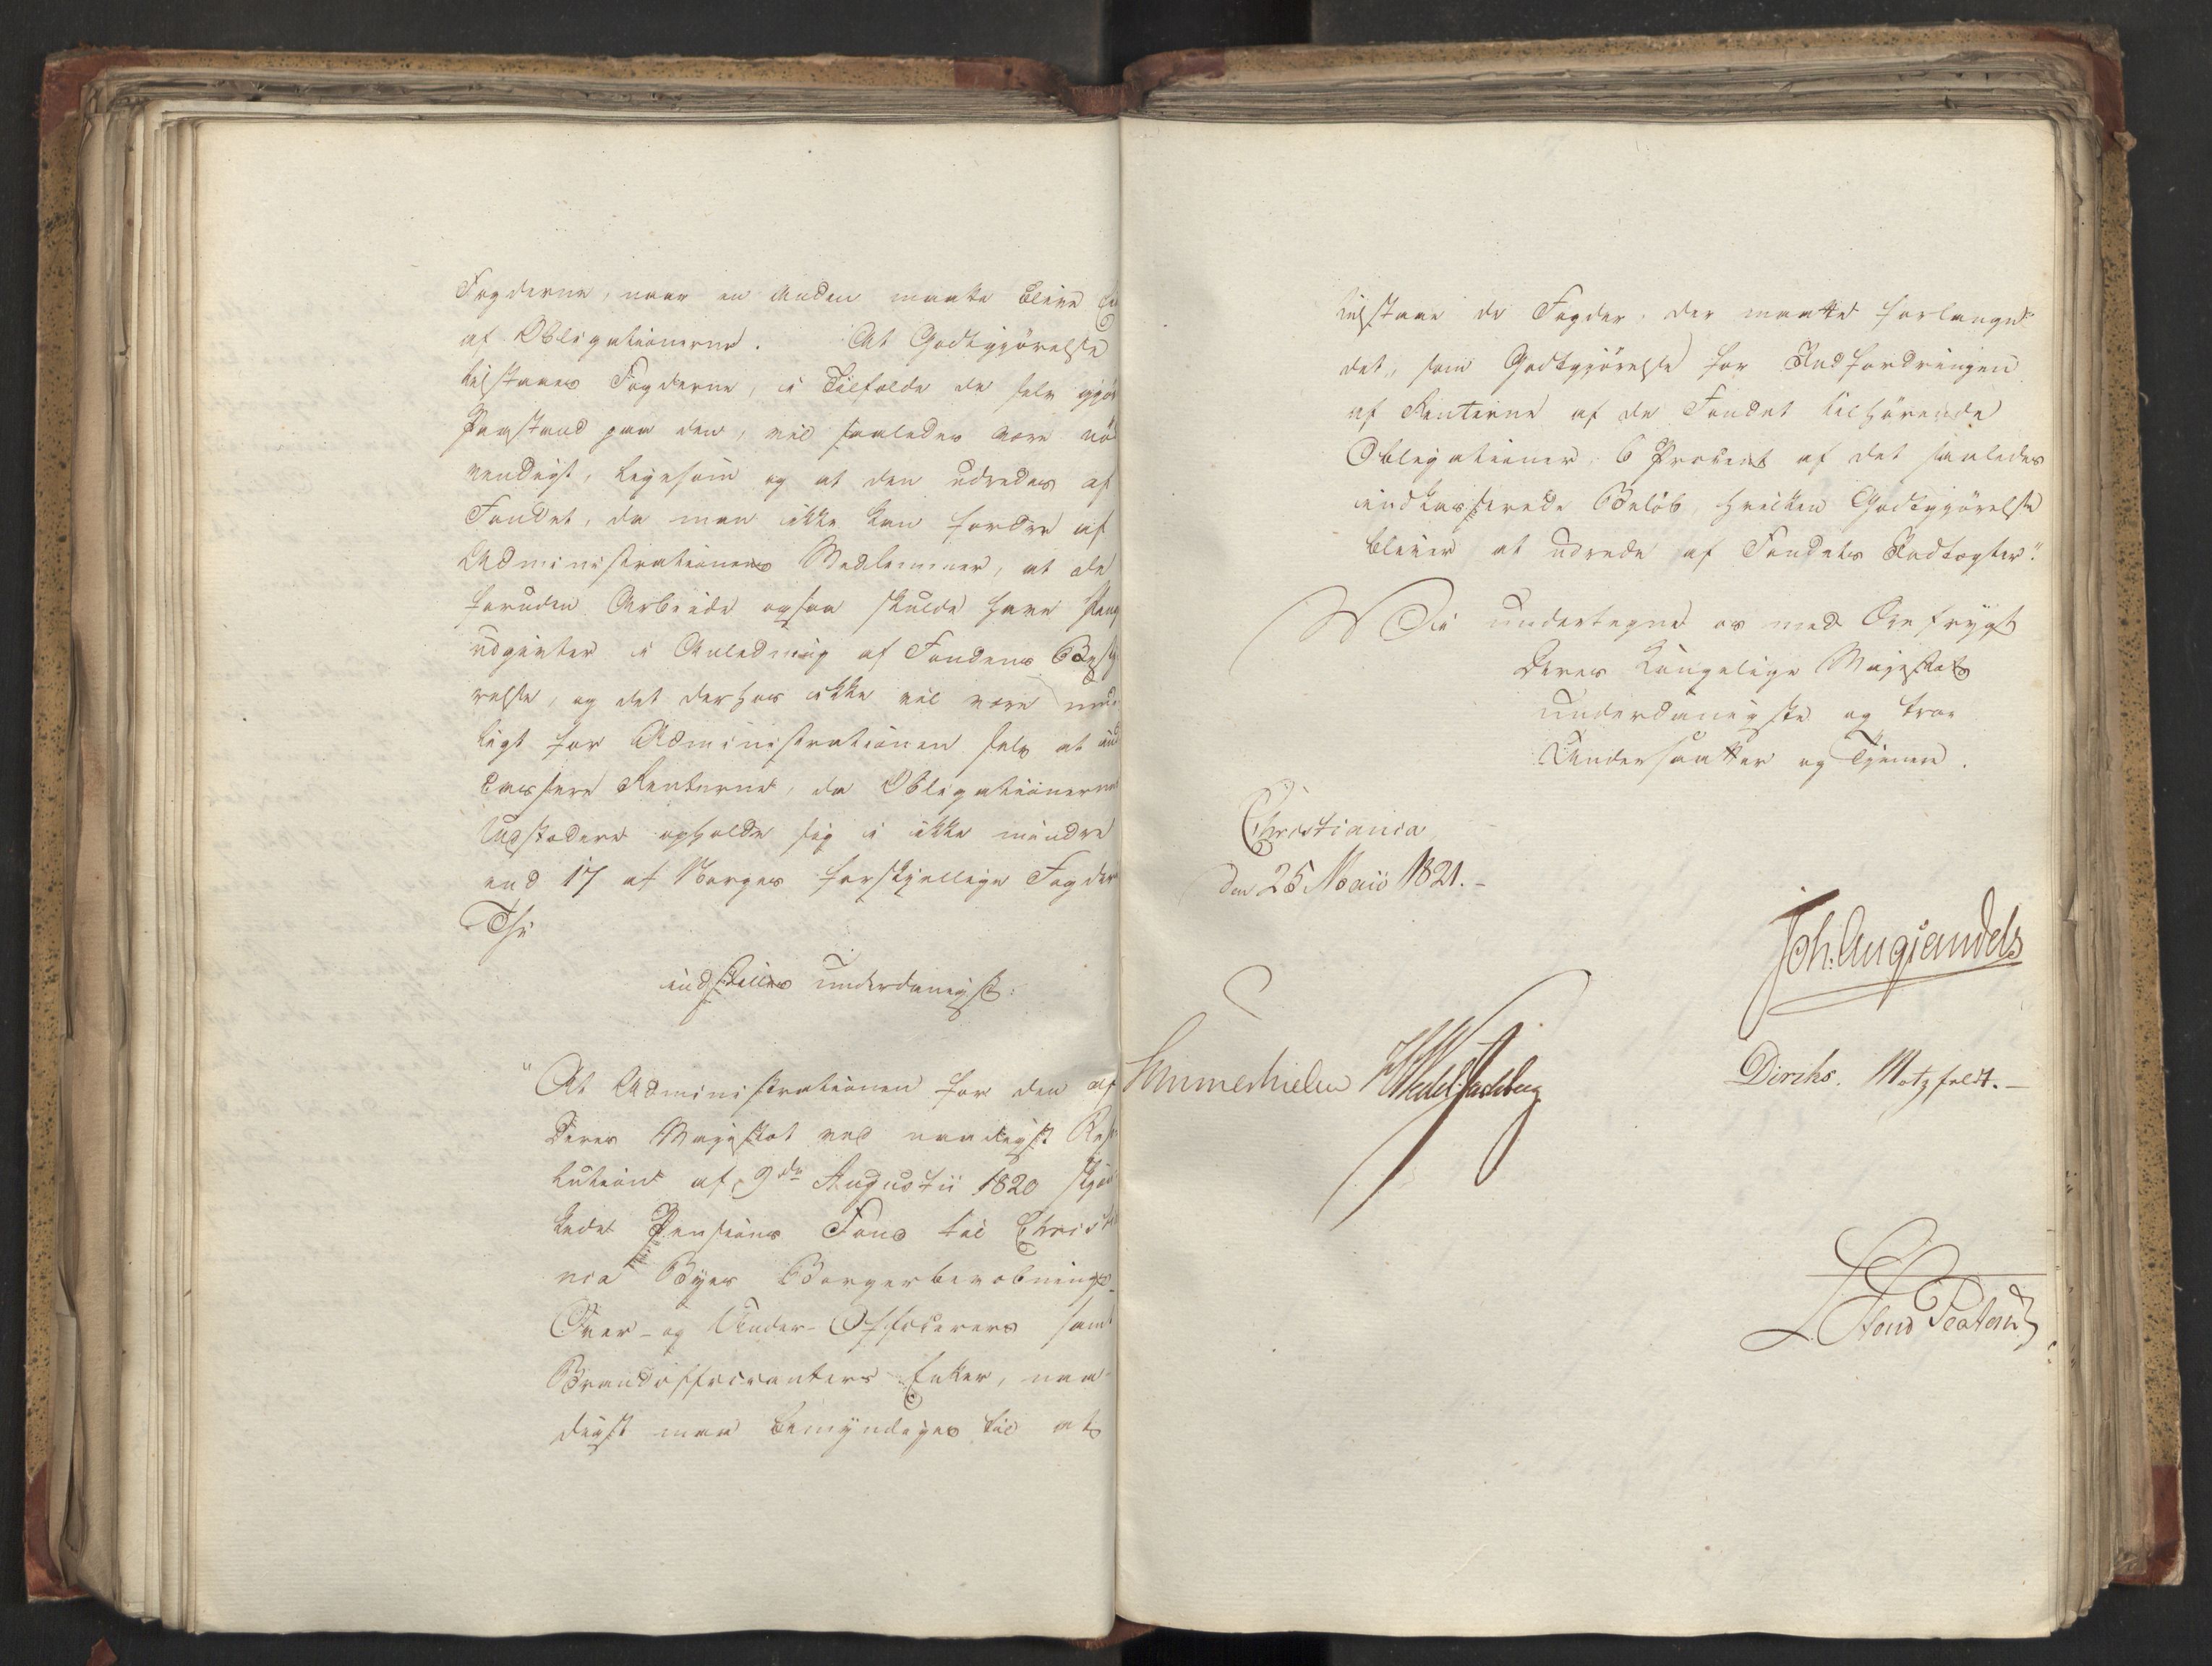 Fogderne, naar en anden maatte blive
af Obligationerne. At Godtgjörelse
tilstaaes Fogderne, i Tilfælde de selv gjör
Paastand paa den, vil saaledes være nö
vendigt, ligesom og at den udredes af
Fondet, da man ikke kan fordre af
Administrationens Medlemmer, at de
foruden Arbeide ogsaa skulde have Peng
udgivter i Anledning af Fondens Besty
relse, og det derhos ikke vil være mue
ligt for Administrationen selv at ind
cassere Renterne, da Obligationernes
Udstædere opholde sig i ikke mindre
end 17 af Norges forskjellige Fogder
Thi
indstilles underdanigst:
"At Administrationen for den af
Deres Majestæt ved naadigst Reso
lution af 9de Augustii 1820 skjæn
kede Pensions Fond til Christia
nia Byes Borgerbevæbnings-
Over- og Under-Officerers samt
Brandofficianters Enker, naa-
digst maa bemyndiges til at
tilstaae de Fogder, der maatte forlange
det, som Godtgjörelse for Indfordringen
af Renterne af de Fondet tilhörende
Obligationer 6 Procent af det saaledes
indkasserede Belöb, hvilken Godtgjörelse
bliver at udrede af Fondets Indtægter."
Vi undertegne os med Ærefrygt
Deres Kongelige Majestæts
underdanigste og troe
Undersaatter og Tjenere.
Christiania
den 25 Maii 1821.-
Joh: Aug Sandels
Sommerhielm HWedel Jarlsberg
Diriks. Motzfeldt.-